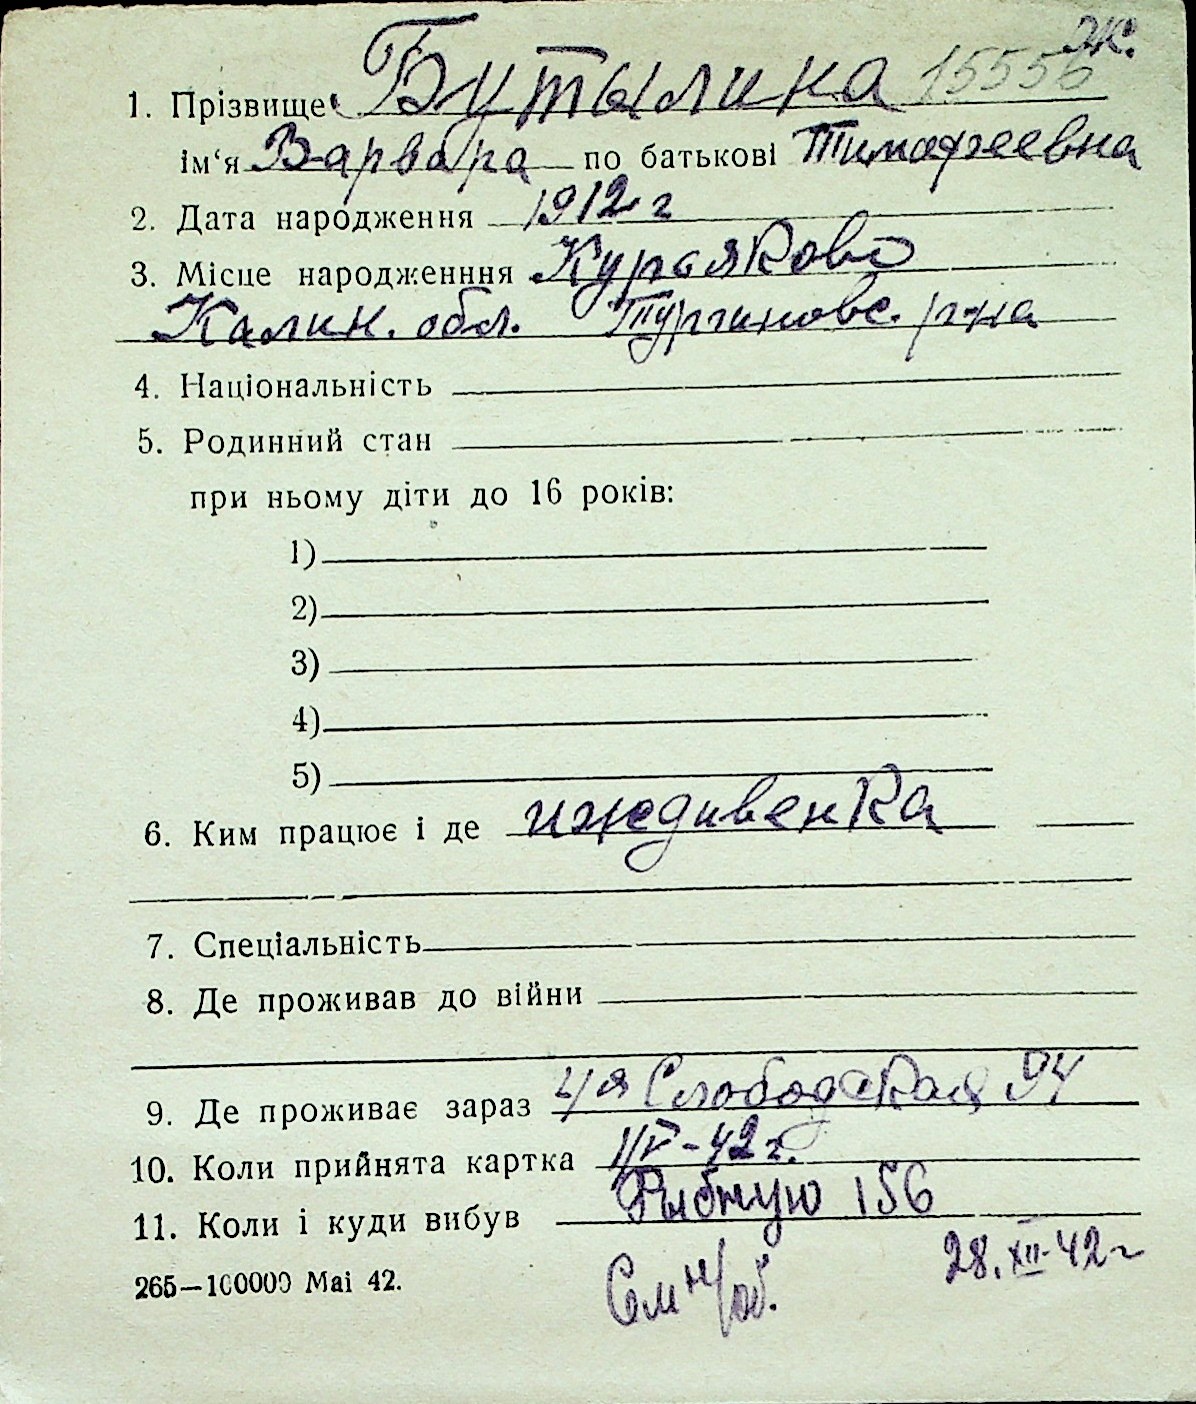 ж.
1. Прізвище Бутылина 15556
ім‘я Варвара по батькові Тимофеевна
2. Дата народження 1912 г
3. Місце народженння Курьяково
Калин. обл. Тургиновс. р-на
4. Національність
5. Родинний стан
при ньому діти до 16 років:
1)
2)
3)
4)
5)
6. Ким працює і де иждивенка
7. Спеціальність
8. Де проживав до війни
9. Де проживає зараз 4я Слободская 94
10. Коли прийнята картка 1/V-42 г.
11. Коли і куди вибув Рыбную 156
28.XII-42 г
См н/об.
265—100000 Маі 42.